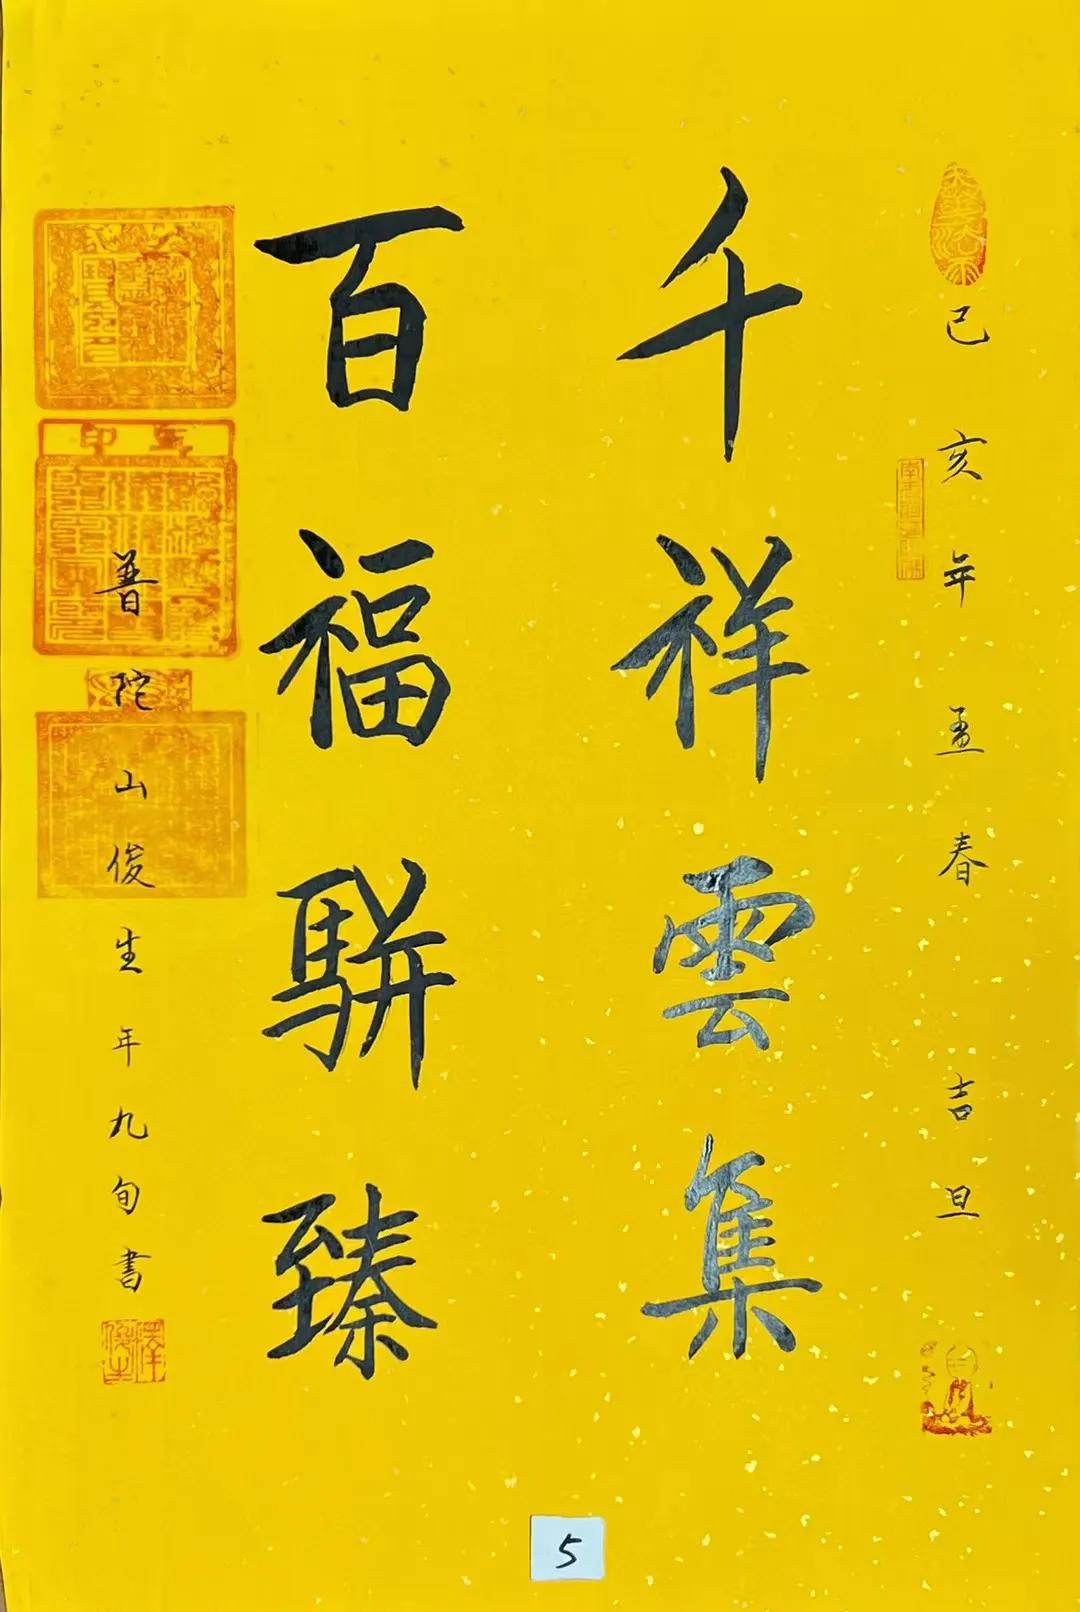 己亥年孟春吉旦
千祥雲集
百福駢臻
普陀山俊生年九旬書
5